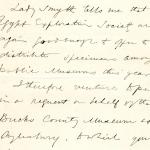 Lady Smyth tells me that
Egypt Exploration Society are
again good enough to offer to
distribute specimens among
Public Museums this year
I therefore venture to pu
in a request on behalf of the
Bucks County Museum
Aylesbury, to which you